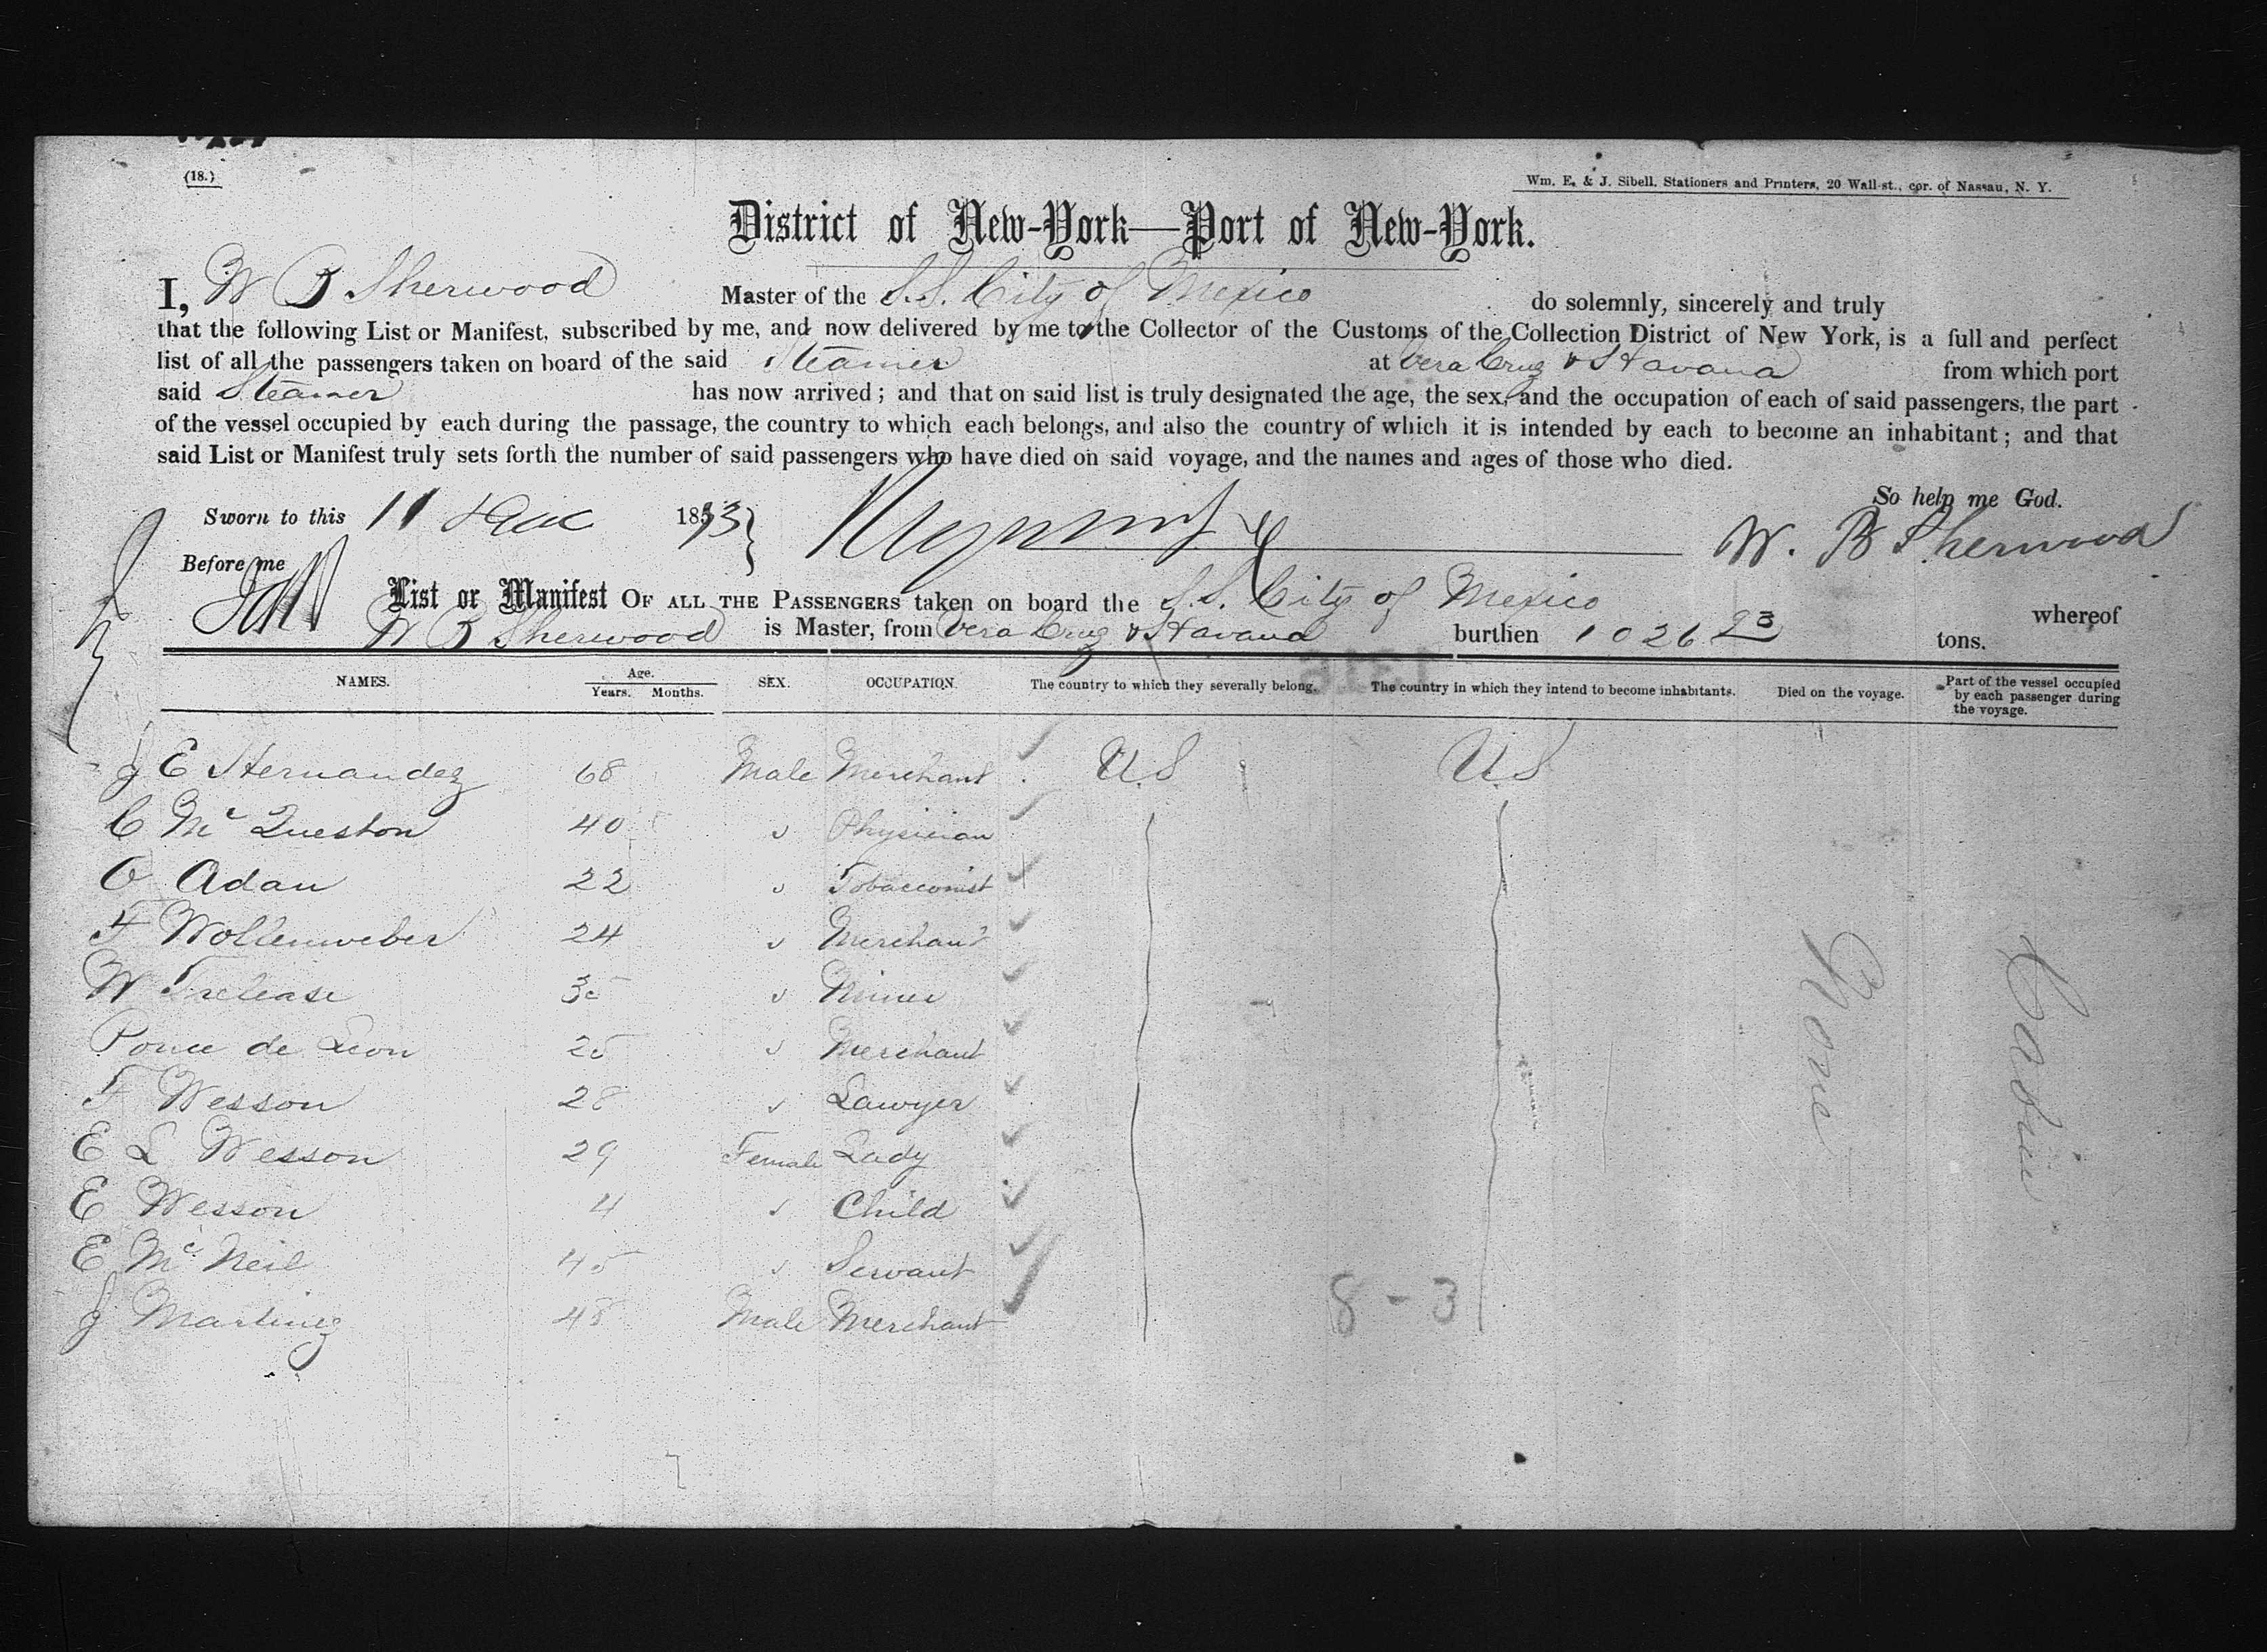 (18.)
Wm. E. & J. Sibell, Stationers and Printers, 20 Wall-st., cor. of Nassau, N. Y.
District of New-York—Port of New-York.
I, W B Sherwood Master of the S.S. City of Mexico do solemnly, sincerely and truly
that the following List or Manifest, subscribed by me, and now delivered by me to the Collector of the Customs of the Collection District of New York, is a full and perfect
list of all the passengers taken on board of the said Steamer at Vera Cruz & Havana from which port
said Steamer has now arrived; and that on said list is truly designated the age, the sex, and the occupation of each of said passengers, the part
of the vessel occupied by each during the passage, the country to which each belongs, and also the country of which it is intended by each to become an inhabitant; and that
said List or Manifest truly sets forth the number of said passengers who have died on said voyage, and the names and ages of those who died.
So help me God.
Sworn to this 11 1873 W. B Sherwood
Before me
List or Manifest OF ALL THE PASSENGERS taken on board the S.S. City of Mexico whereof
W B Sherwood is Master, from Vera Cruz & Havana burthen 1026 23 tons.
NAMES. Age. Years. Months. SEX. OCCUPATION. The country to which they severally belong. The country in which they intend to become inhabitants. Died on the voyage. Part of the vessel occupied by each passenger during the voyage.
J E Hernandez 68 Male Merchant U.S U.S
C Mc Queston 40 " Physician
O Adan 22 " Tobacconist
F Wollenweber 24 " Merchant
W Trelease 35 " Miner
Ponce de Leon 25 " Merchant
F Wesson 28 " Lawyer
E L Wesson 29 Female Lady
E Wesson 4 " Child
E Mc Neil 45 " Servant
J Martinez 48 Male Merchant
None
Cabin
8-3